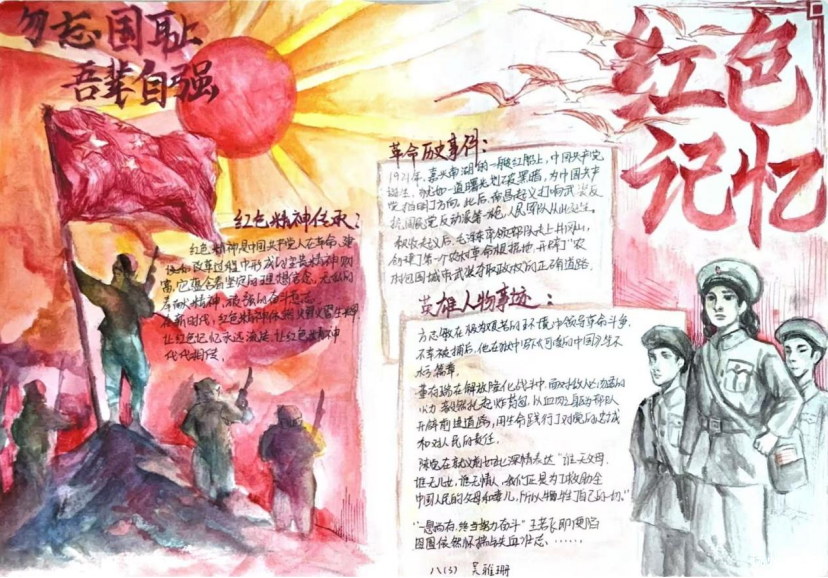 勿忘国耻
吾辈自强
红色
记忆
红色精神传承：
红色精神是中国共产党人在革命、建
设、改革过程中形成的宝贵精神财
富，它蕴含着坚定的理想信念、无私的
奉献精神、顽强的奋斗意志
在新时代，红色精神依然
让红色记忆永远流传，让红色精神
代代相传
革命历史事件：
1921年，嘉兴南湖的一艘红船上，中国共产党
诞生，犹如一道曙光划破黑暗，为中国
指明了方向。此后，南昌起义打响武装反
抗国民党反动派第一枪，人民军队从此诞生。
秋收起义后，毛泽东带领部队走上井冈山，
创建了第一个农村革命根据地，开辟了“农
村包围城市武装夺取政权的正确道路.
英雄人物事迹：
方志敏在极为艰苦的环境中领导革命斗争.
不幸被捕后，他在狱中写下《可爱的中国》等不
朽篇章.
董存瑞在解放隆化战斗中，面对敌人
火力
开辟前进道路，用生命践行了对党的忠诚
和对人民的责任.
陈觉在就义前 深情表达“谁无父母，
谁无儿女，谁无情人，我们正是为了救助全
中国人民的父母和妻儿，所以牺牲了自己的一切."
“一息尚存，终当努力奋斗”王若飞即使陷
囹圄依然怀揣
八(3) 吴雅珊